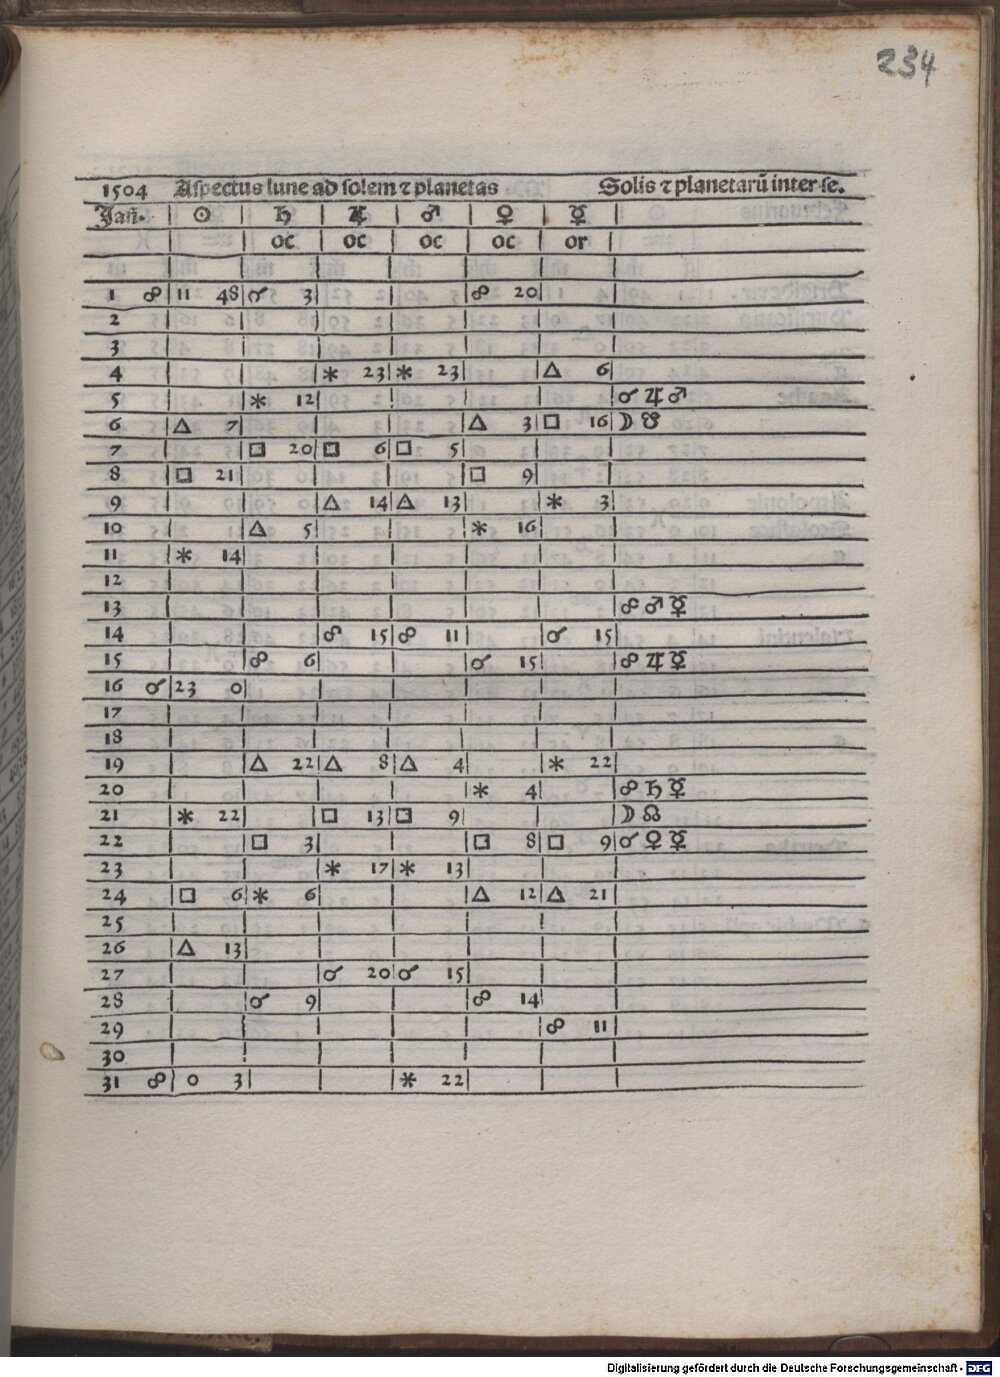 234
1504 Aspectus lune ad solem ⁊ planetas Solis ⁊ planetarū inter se.
Jañ. ☉ ♄ ♃ ♂ ♀ ☿
oc oc oc oc or
1 ☍ 11 48 ☌ 3 ☍ 20
2
3
4 ⚹ 23 ⚹ 23 △ 6
5 ⚹ 12 ☌ ♃ ♂
6 △ 7 △ 3 □ 16 ☽ ☋
7 □ 20 □ 6 □ 5
8 □ 21 □ 9
9 △ 14 △ 13 ⚹ 3
10 △ 5 ⚹ 16
11 ⚹ 14
12
13 ☍ ♂ ☿
14 ☍ 15 ☍ 11 ☌ 15
15 ☍ 6 ☌ 15 ☍ ♃ ☿
16 ☌ 23 0
17
18
19 △ 22 △ 8 △ 4 ⚹ 22
20 ⚹ 4 ☍ ♄ ☿
21 ⚹ 22 □ 13 □ 9 ☽ ☊
22 □ 3 □ 8 □ 9 ☌ ♀ ☿
23 ⚹ 17 ⚹ 13
24 □ 6 ⚹ 6 △ 12 △ 21
25
26 △ 13
27 ☌ 20 ☌ 15
28 ☌ 9 ☍ 14
29 ☍ 11
30
31 ☍ 0 3 ⚹ 22
Digitalisierung gefördert durch die Deutsche Forschungsgemeinschaft - DFG